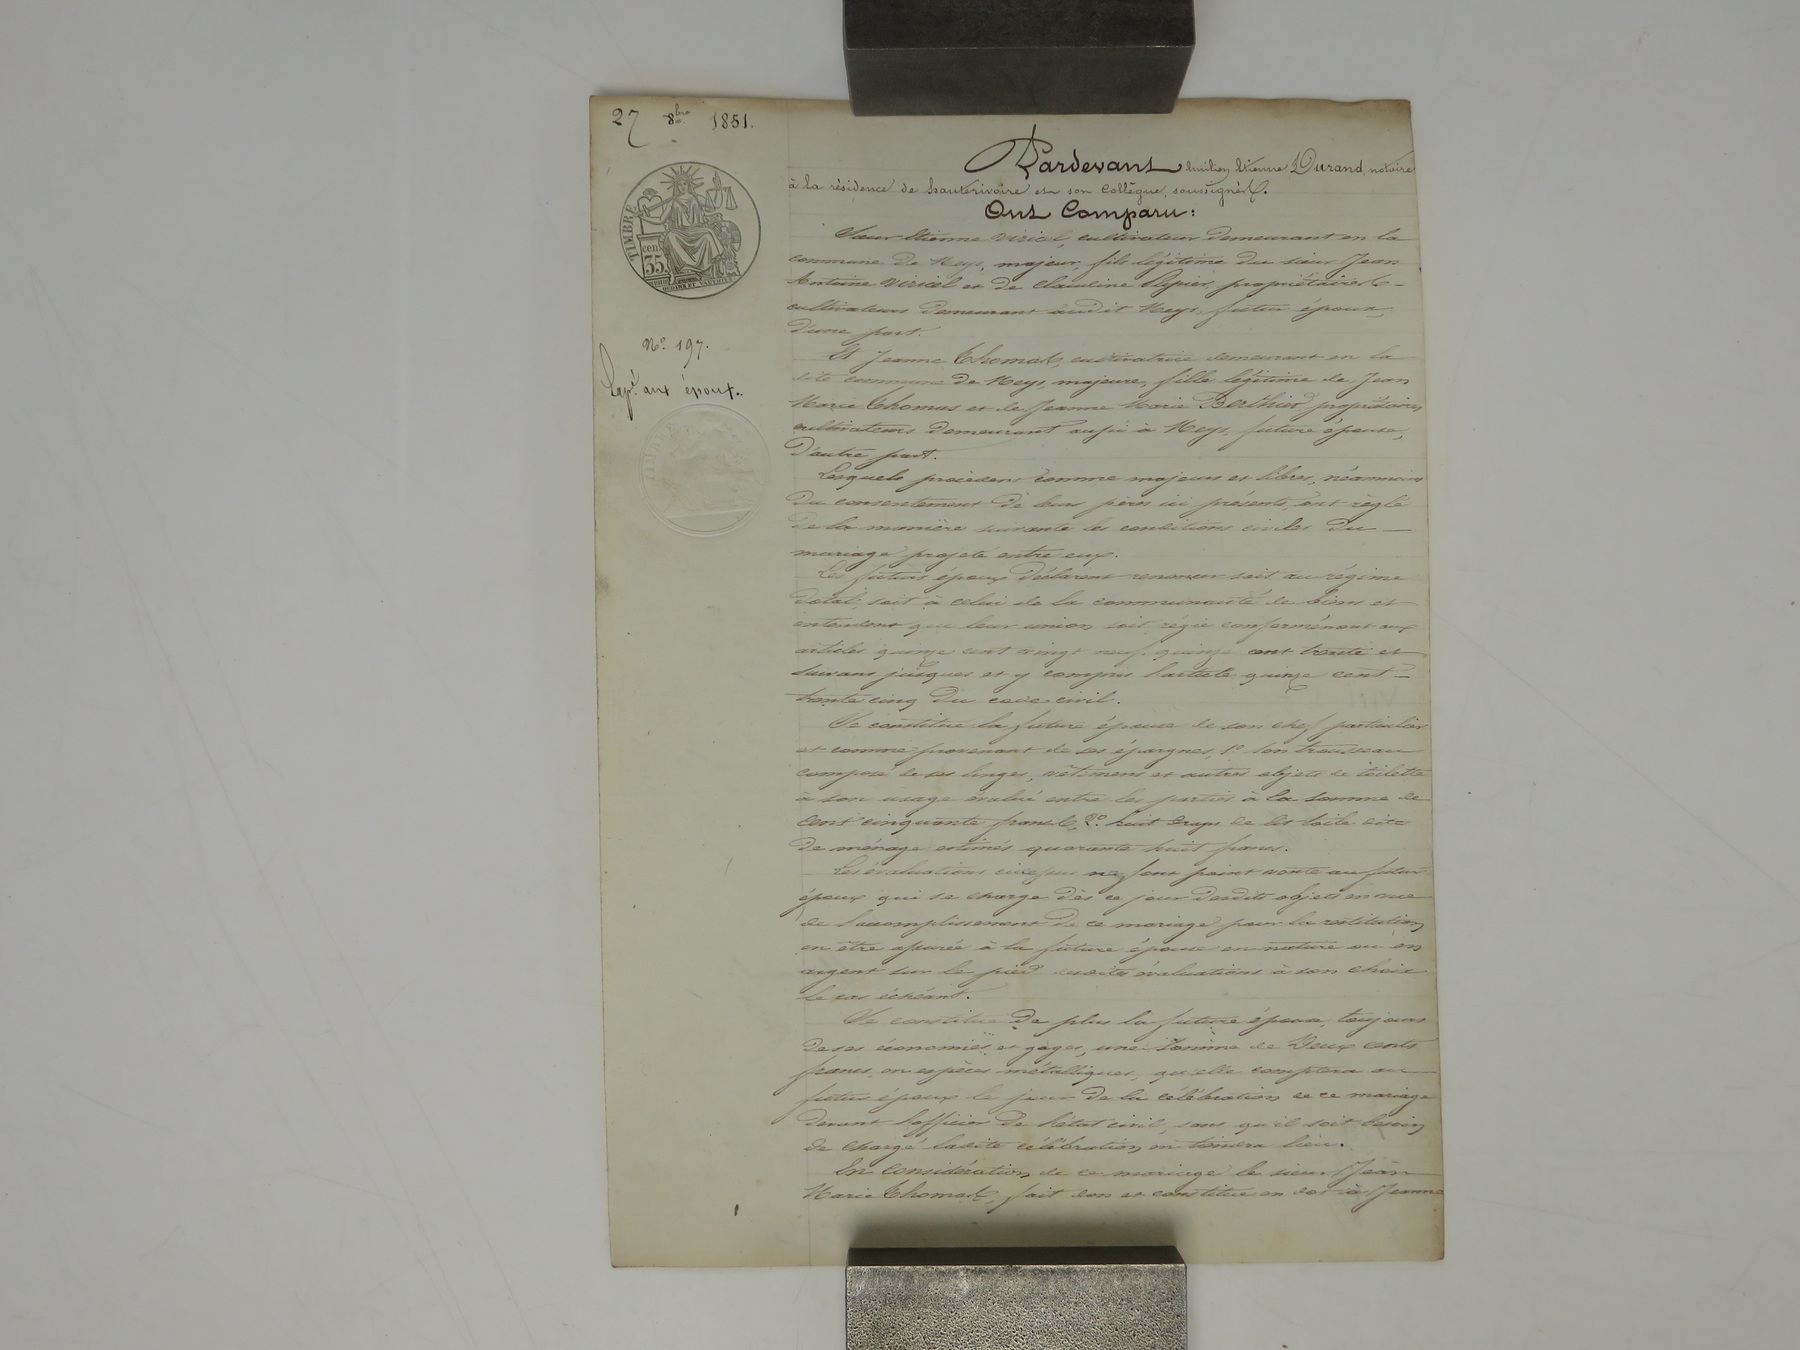 27 8bre 1851.
TIMBRE
cen.
35.
N° 197.
Expé. aux époux.
Pardevant Emilien Etienne Durand, notaire
à la résidence de hauterivoire et son collègue, soussignés.
Ont Comparu:
Sieur Etienne Viricel, cultivateur demeurant en la
commune de Meys, majeur, fils légitime du sieur Jean
Antoine Viricel et de Claudine Pupier, propriétaires
cultivateurs demeurant audit Meys, futur époux,
d'une part.
Et Jeanne Thomas, cultivatrice demeurant en la
dite commune de Meys, majeure, fille légitime de Jean
Marie Thomas et de Jeanne Marie Berthier propriétaires
cultivateurs demeurant aussi à Meys, future épouse,
d'autre part.
Lesquels procèdent comme majeurs et libres, néanmoins
du consentement de leurs pères ici présents, ont règlé
de la manière suivante les conditions civiles du
mariage projeté entre eux.
Les futurs époux déclarent renoncer soit au régime
dotal soit à celui de la communauté de biens et
entendent que leur union soit régie conformément aux
articles quinze cent vingt neuf, quinze cent trente et
suivans jusques et y compris l'article quinze cent
trente cinq du code civil.
Se constitue la future épouse de son chef particulier
et comme provenant de ses épargnes, 1° son trousseau
composé de ses linges, vêtemens et autres objets de toilette
à son usage évalué entre les parties à la somme de
cent cinquante francs, 2° huit draps de lit toile dite
de ménage estimés quarante huit francs.
Les évaluations ci-dessus ne font point vente au futur
époux qui se charge dès ce jour desdits objets en vue
de l'accomplissement de ce mariage pour la restitution
en être assurée à la future épouse en nature ou en
argent sur le pied desdites évaluations à son choix
le cas échéant.
Se constitue de plus la future épouse, toujours
de ses économies et gages, une somme de Deux cents
francs, en espèces métalliques, qu'elle comptera au
futur époux le jour de la célébration de ce mariage
devant l'officier de l'état civil, sans qu'il soit besoin
de chargé ladite célébration en tiendra lieu.
En considération de ce mariage le sieur Jean
Marie Thomas, fait don et constitue en dot à Jeanne